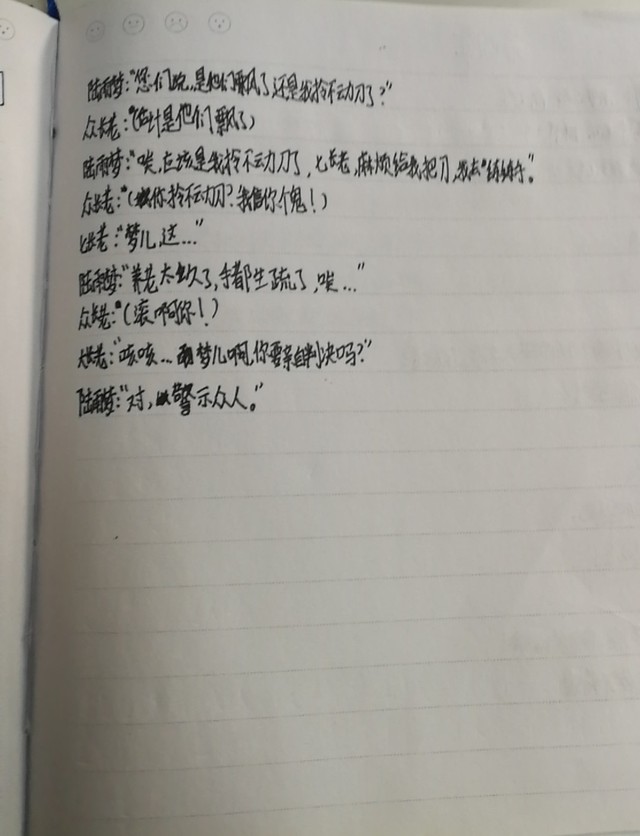 陆雨梦:“您们说,是他们飘了还是我拎不动刀了?”
众长老:(估计是他们飘了)
陆雨梦:“唉,应该是我拎不动刀了,七长老,麻烦给我把刀,我去练练手。”
众长老:(你拎不动刀?我信你个鬼!)
七长老:“梦儿,这…”
陆雨梦:“养老太久了,手都生疏了,唉…”
众长老:(滚啊你!)
大长老:“咳咳…梦儿啊,你要亲自判决吗?”
陆雨梦:“对,以警示众人。”